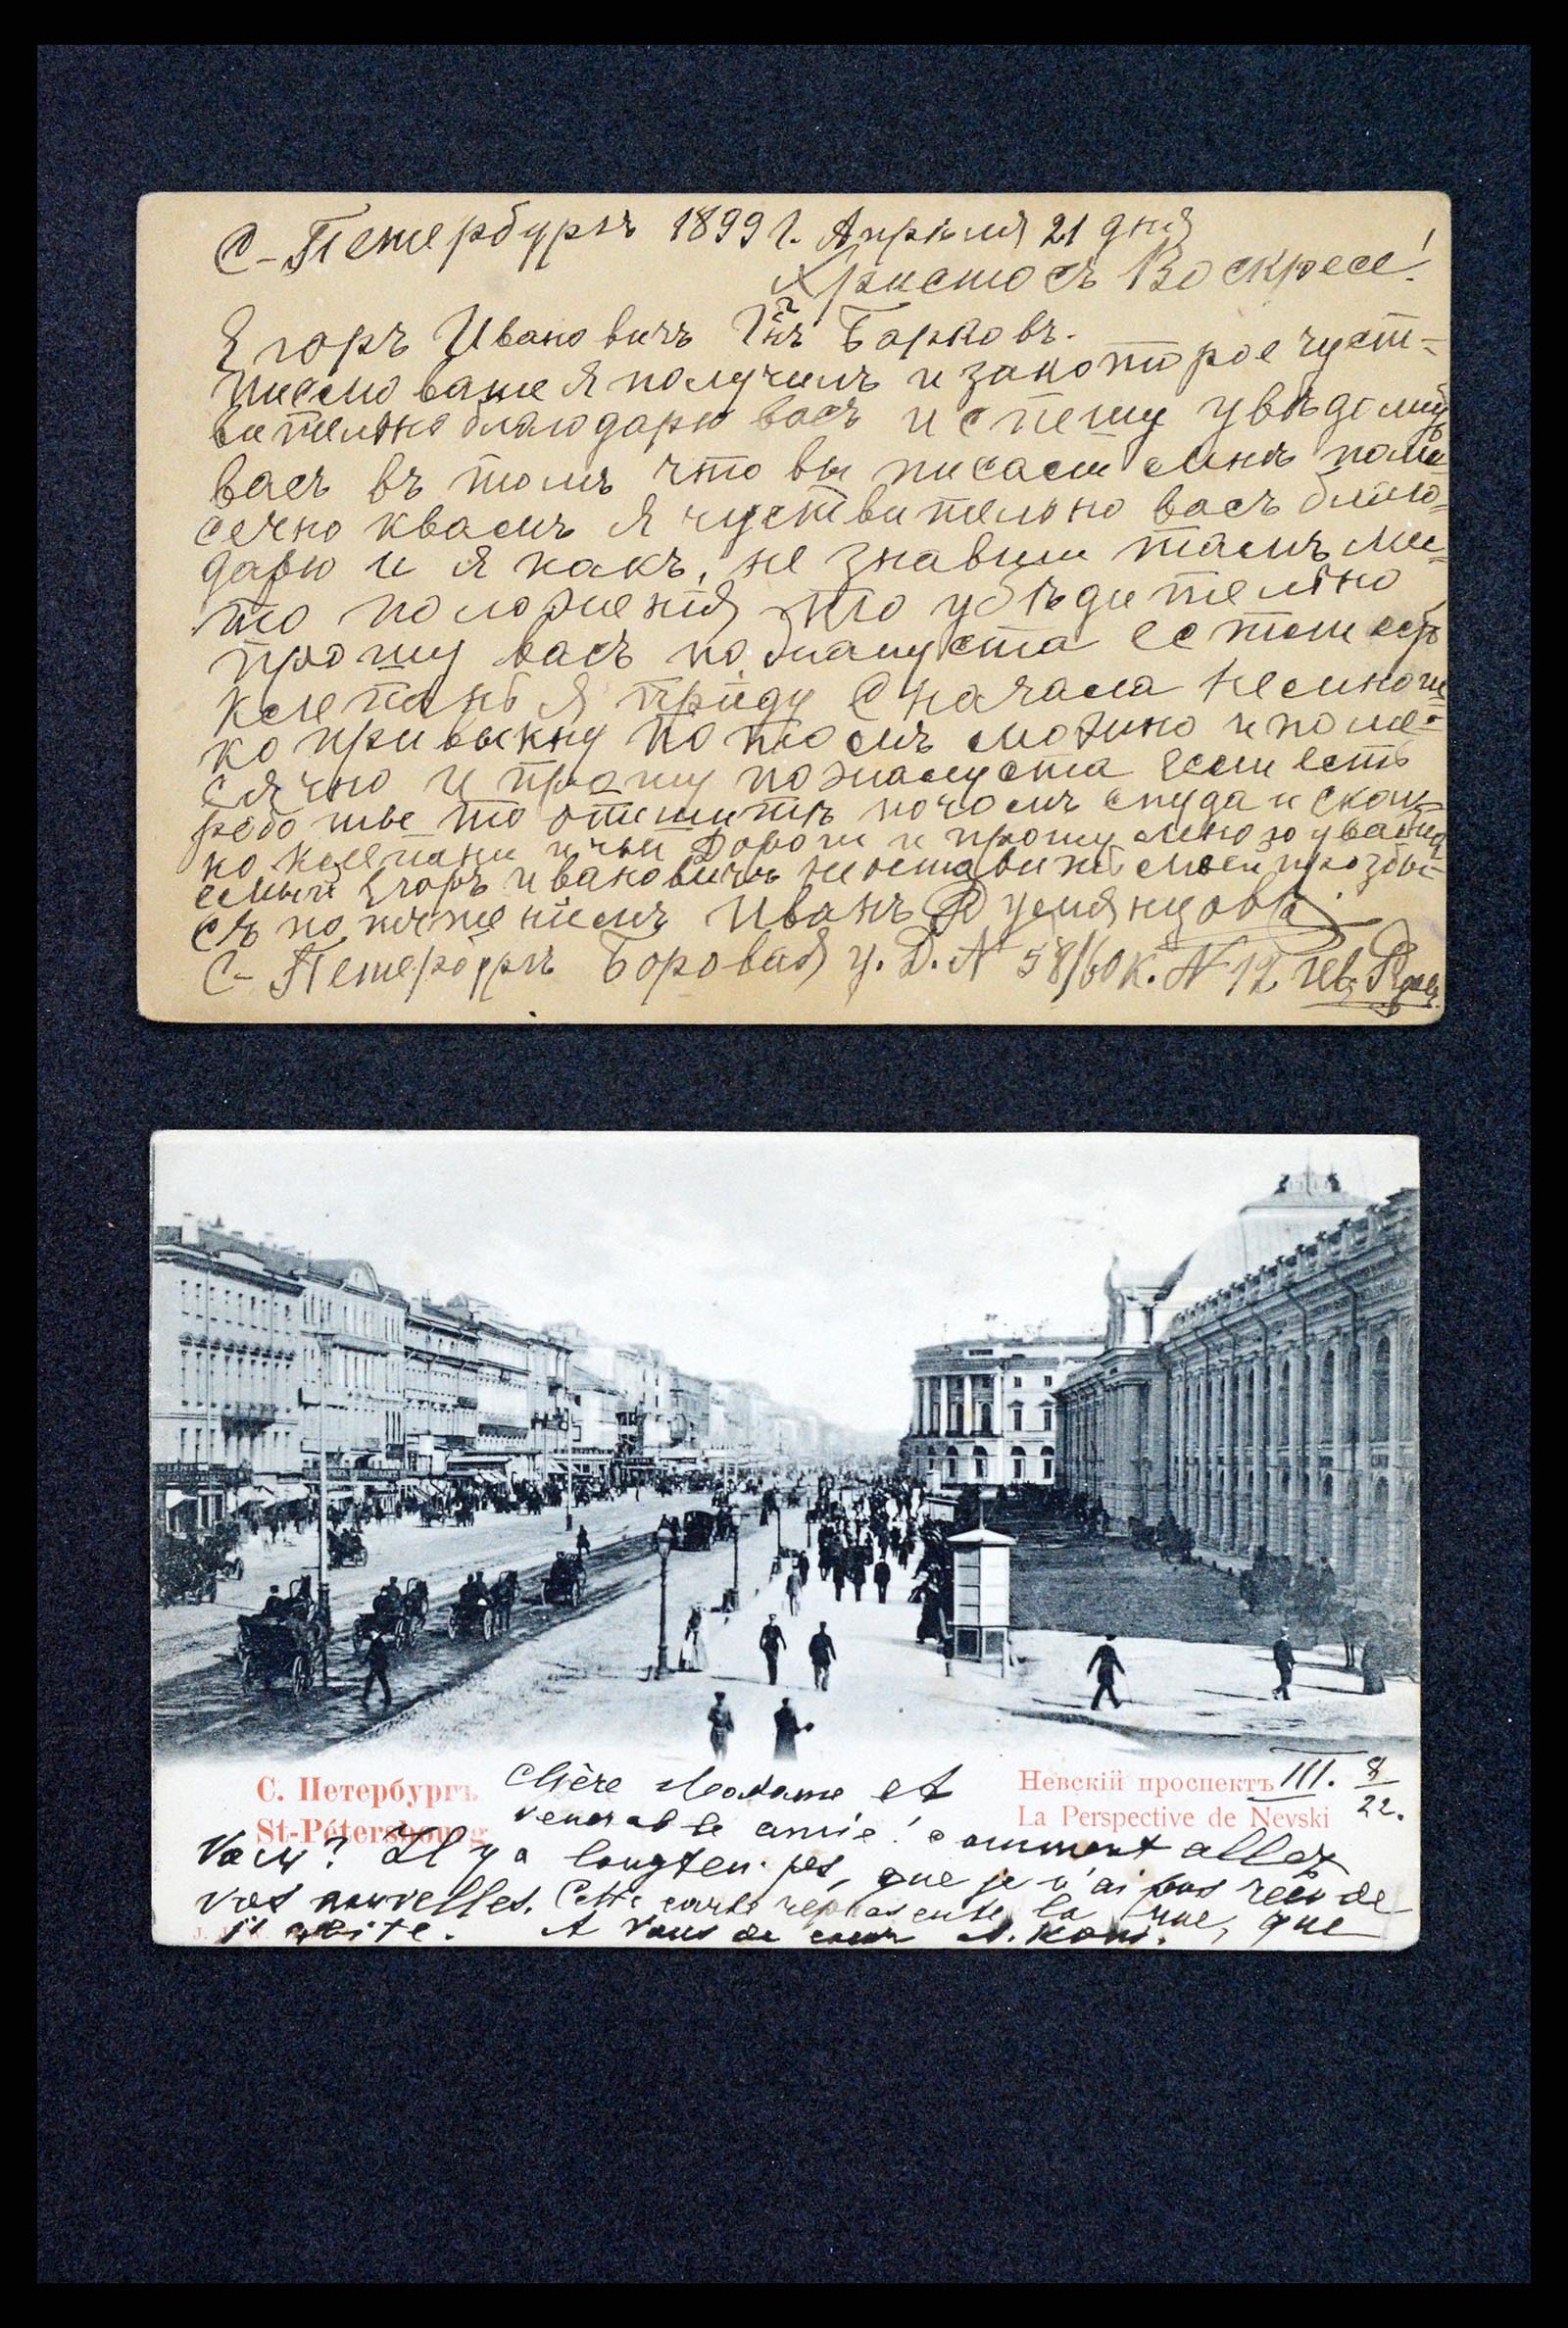 С-Петербургъ 1899 г. Апрѣля 21 дня
Христосъ Воскресе!
Егоръ Ивановичъ Гнъ Барковъ.
писмо ваше я получилъ и закоторое чуст-
вительно благодарю васъ и спешу увѣдомить
васъ въ томъ что вы писали мнѣ поме
сечно квамъ я чуствительно васъ благо-
дарю и я какъ, не знавши тамъ ме-
то положенія то убѣдительно
прошу васъ пожалуста естли
клепань я приду Сначала немнош
ко привыкну потомъ можно и поме-
сячно и прошу пожалуста если есть
робо то отпишитѣ почомъ снуда и скол-
ко клепани и прошу
Егоръ ивановичъ неоставите моей прозбы-
съ почтеніемъ Иванъ Румянцовъ
С-Петербургъ Боровая у. Д. № 58/60 к. № 12
С. Петербургъ
St-Pétersbourg
Невскій проспектъ
La Perspective de Nevski
III. 8/22.
Chère Madame et
venerable amie! comment allez
Vous? Il y a longtemps, que je n'ai pas reçu de
vos nouvelles. Cette carte représente la rue, que
j'habite. A Vous de coeur A. Koni.